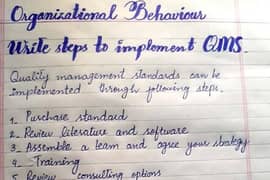 Organizational Behaviour
Write steps to implement QMS.
Quality management standards can be
implemented through following steps.
1. Purchase standard
2. Review literature and software
3. Assemble a team and agree your strategy
4. Training
5. Review consulting options